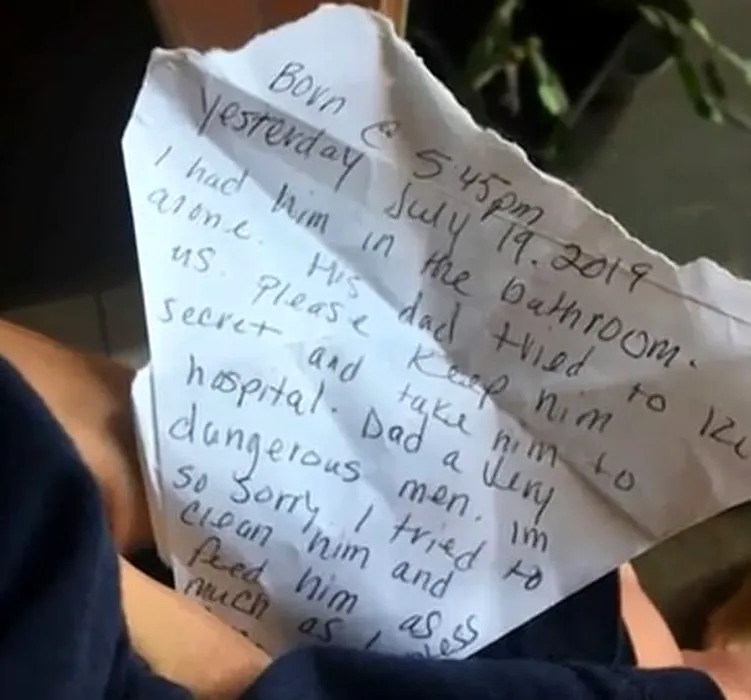 Born @ 5:45pm
Yesterday July 19. 2019
I had him in the bathroom.
alone. His dad tried to
us. Please Keep him
secret and take him to
hospital. Dad a Very
dangerous men. Im
so sorry I tried to
clean him and
feed him as
much as I